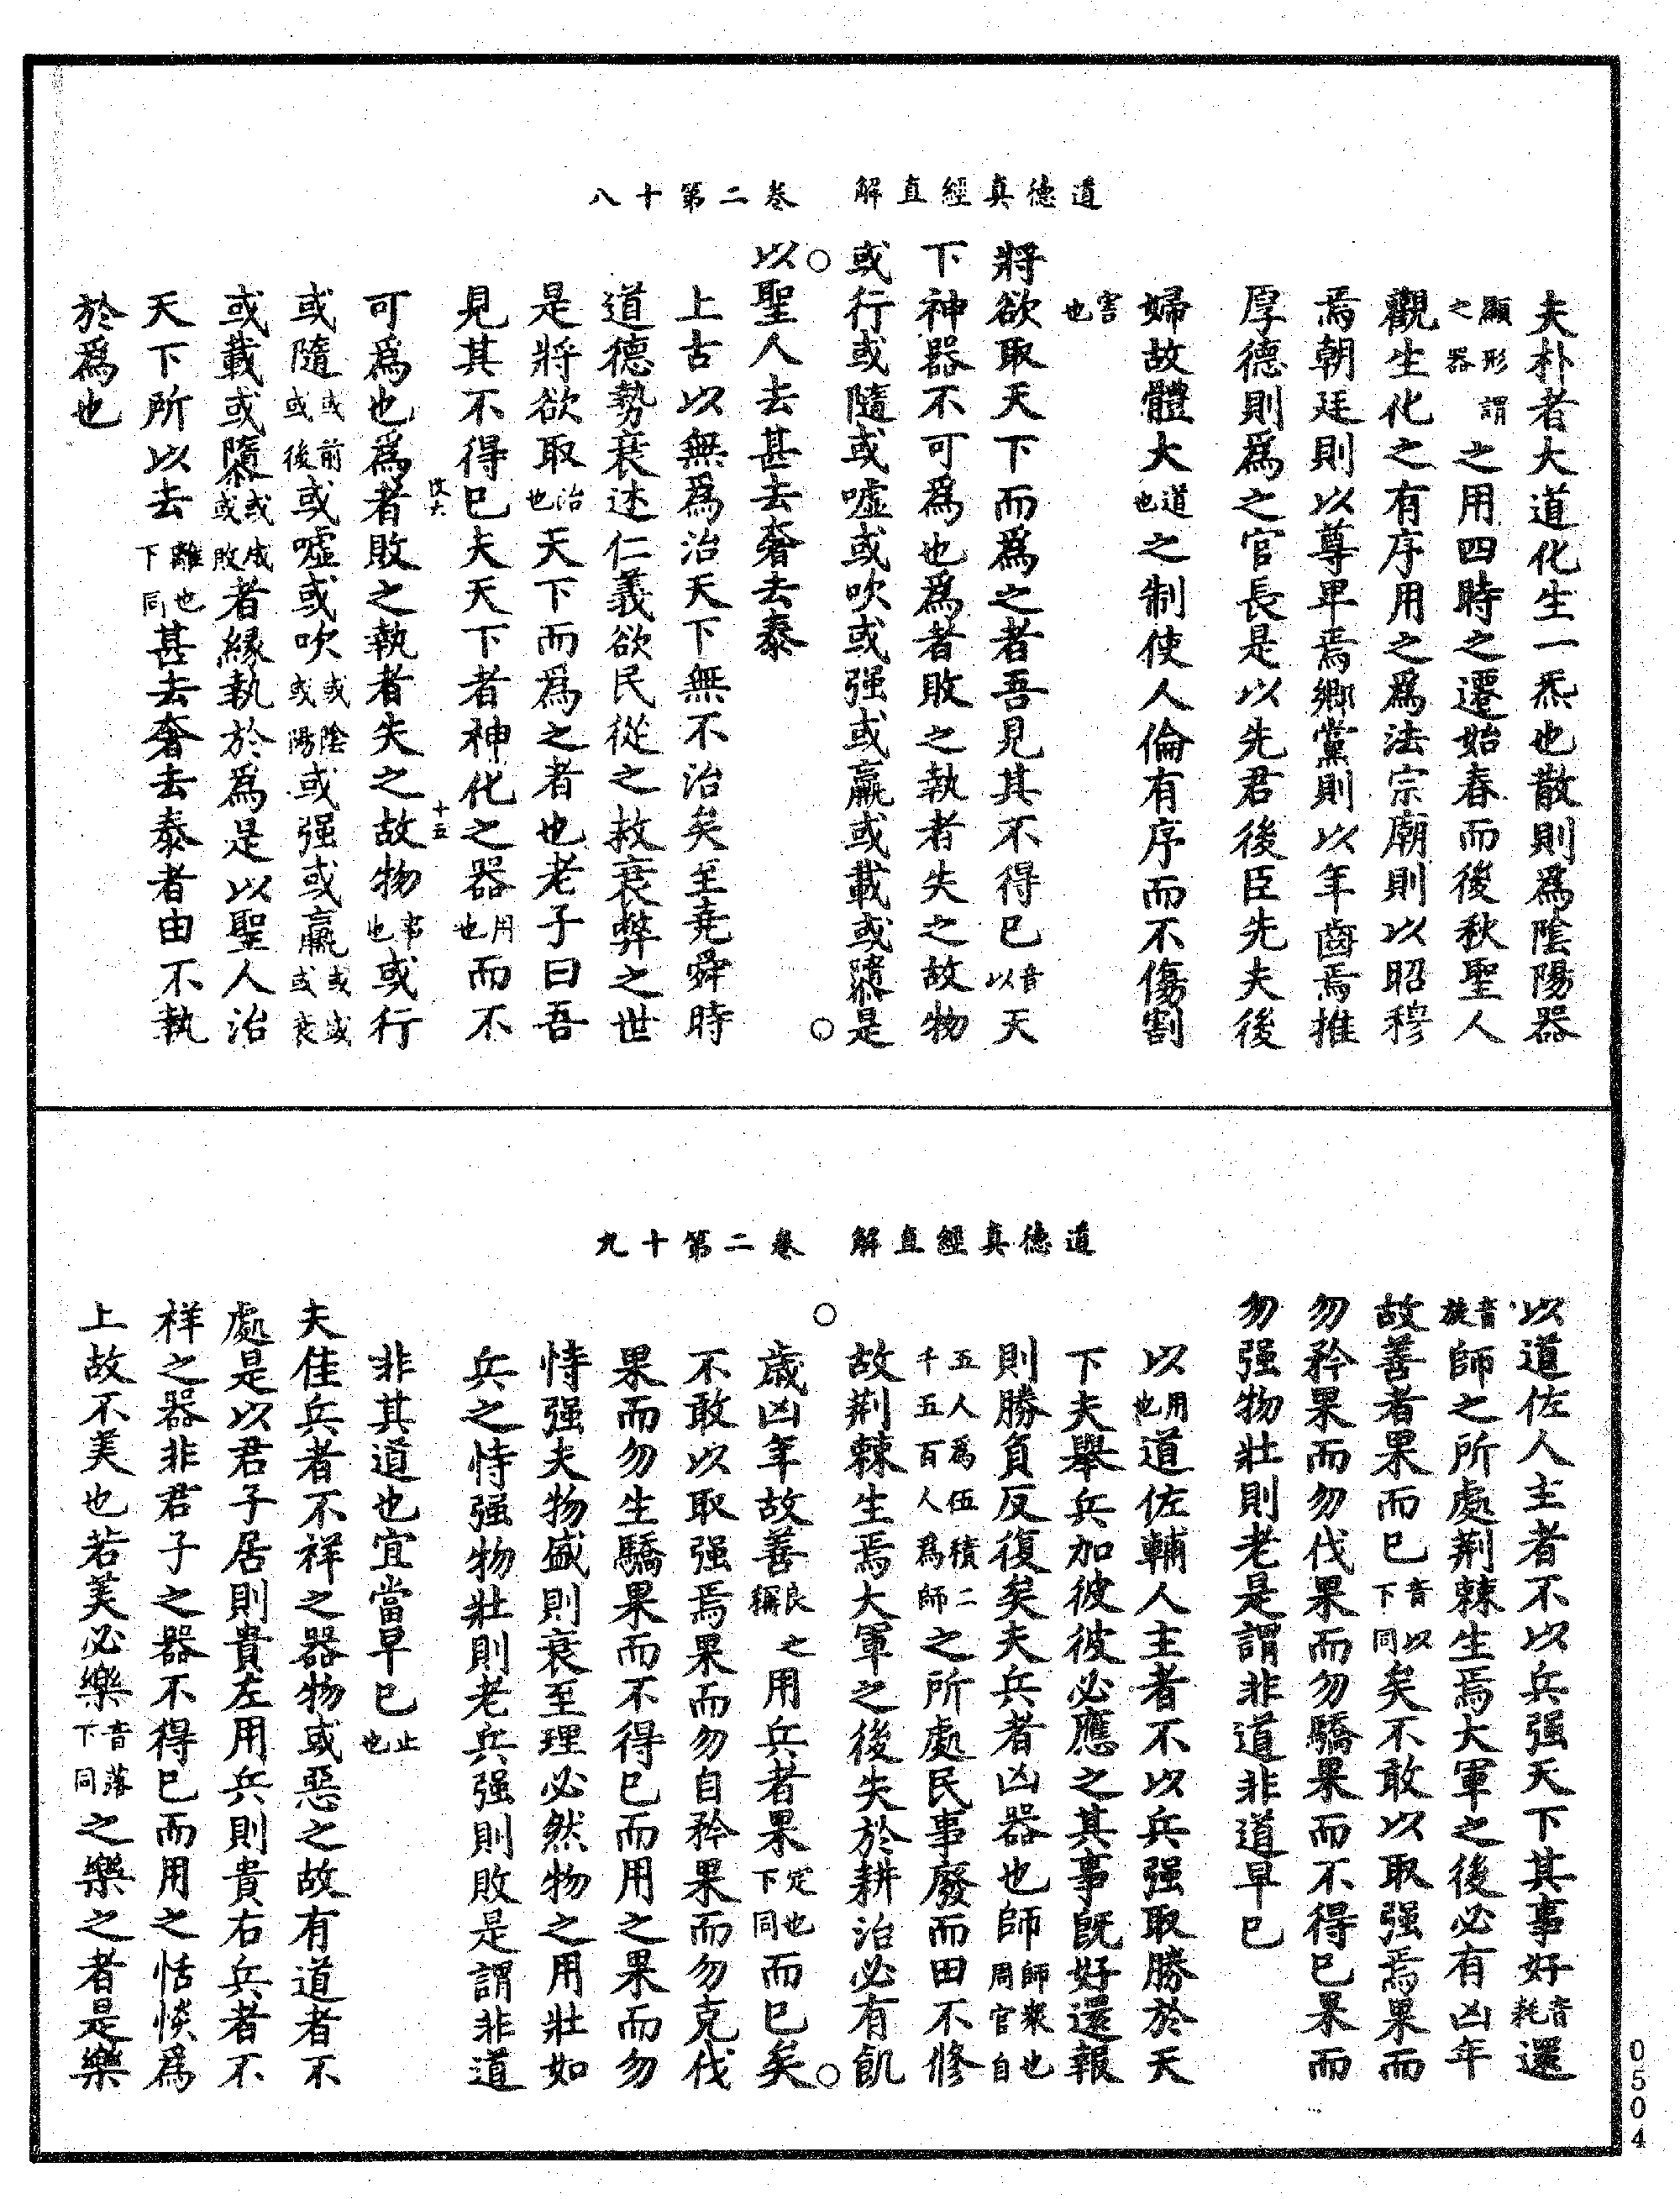 道德真經直解　卷二第十八
夫朴者大道化生一炁也散則爲陰陽器
顯形謂之器之用四時之遷始春而後秋聖人
觀生化之有序用之爲法宗廟則以昭穆
焉朝廷則以尊卑焉鄉黨則以年齒焉推
厚德則爲之官長是以先君後臣先夫後
婦故體大道也之制使人倫有序而不傷割
害也
將欲取天下而爲之者吾見其不得已音以天
下神器不可爲也爲者敗之執者失之故物
或行或隨或噓或吹或强或羸或載或隳是
以聖人去甚去奢去泰
上古以無爲治天下無不治矣至堯舜時
道德勢衰述仁義欲民從之救衰弊之世
是將欲取治也天下而爲之者也老子曰吾
見其不得已夫天下者神化之器用也而不
可爲也爲者敗之執者失之故物事也或行
或隨或前或後或噓或吹或陰或陽或强或羸或或或衰
或載或隳或成或敗者緣執於爲是以聖人治
天下所以去離也下同甚去奢去泰者由不執
於爲也
道德真經直解　卷二第十九
以道佐人主者不以兵强天下其事好音耗還
音旋師之所處荆棘生焉大軍之後必有凶年
故善者果而已音以下同矣不敢以取强焉果而
勿矜果而勿伐果而勿驕果而不得已果而
勿强物壯則老是謂非道非道早已
以用也道佐輔人主者不以兵强取勝於天
下夫舉兵加彼彼必應之其事旣好還報
則勝負反復矣夫兵者凶器也師師衆也周官自
五人爲伍積二千五百人爲師之所處民事廢而田不修
故荆棘生焉大軍之後失於耕治必有飢
歲凶年故善良之稱用兵者果定也下同而已矣
不敢以取强焉果而勿自矜果而勿克伐
果而勿生驕果而不得已而用之果而勿
恃强夫物盛則衰至理必然物之用壯如
兵之恃强物壯則老兵强則敗是謂非道
非其道也宜當早已止也
夫佳兵者不祥之器物或惡之故有道者不
處是以君子居則貴左用兵則貴右兵者不
祥之器非君子之器不得已而用之恬惔爲
上故不美也若美必樂音落下同之樂之者是樂
0504